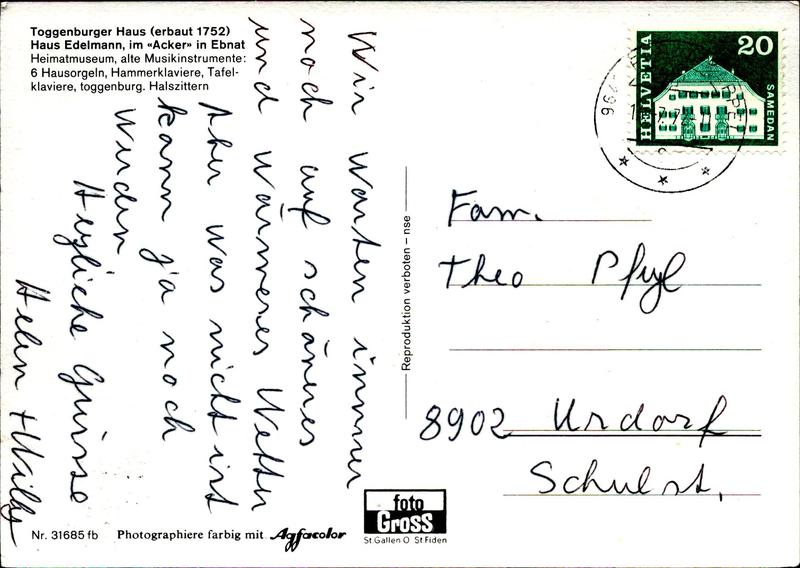 Toggenburger Haus (erbaut 1752)
Haus Edelmann, im «Acker» in Ebnat
Heimatmuseum, alte Musikinstrumente:
6 Hausorgeln, Hammerklaviere, Tafel-
klaviere, toggenburg. Halszittern
Wir warten immer
noch auf schöneres
und wärmeres Wetter
Aber was nicht ist
kann ja noch
werden
Herzliche Grüsse
Helen + Willy
Reproduktion verboten – nse
HELVETIA
20
SAMEDAN
Fam.
Theo Pfyl
8902 Urdorf
Schulst.
Nr. 31685 fb
Photographiere farbig mit Agfacolor
foto
Gross
St.Gallen O St.Fiden